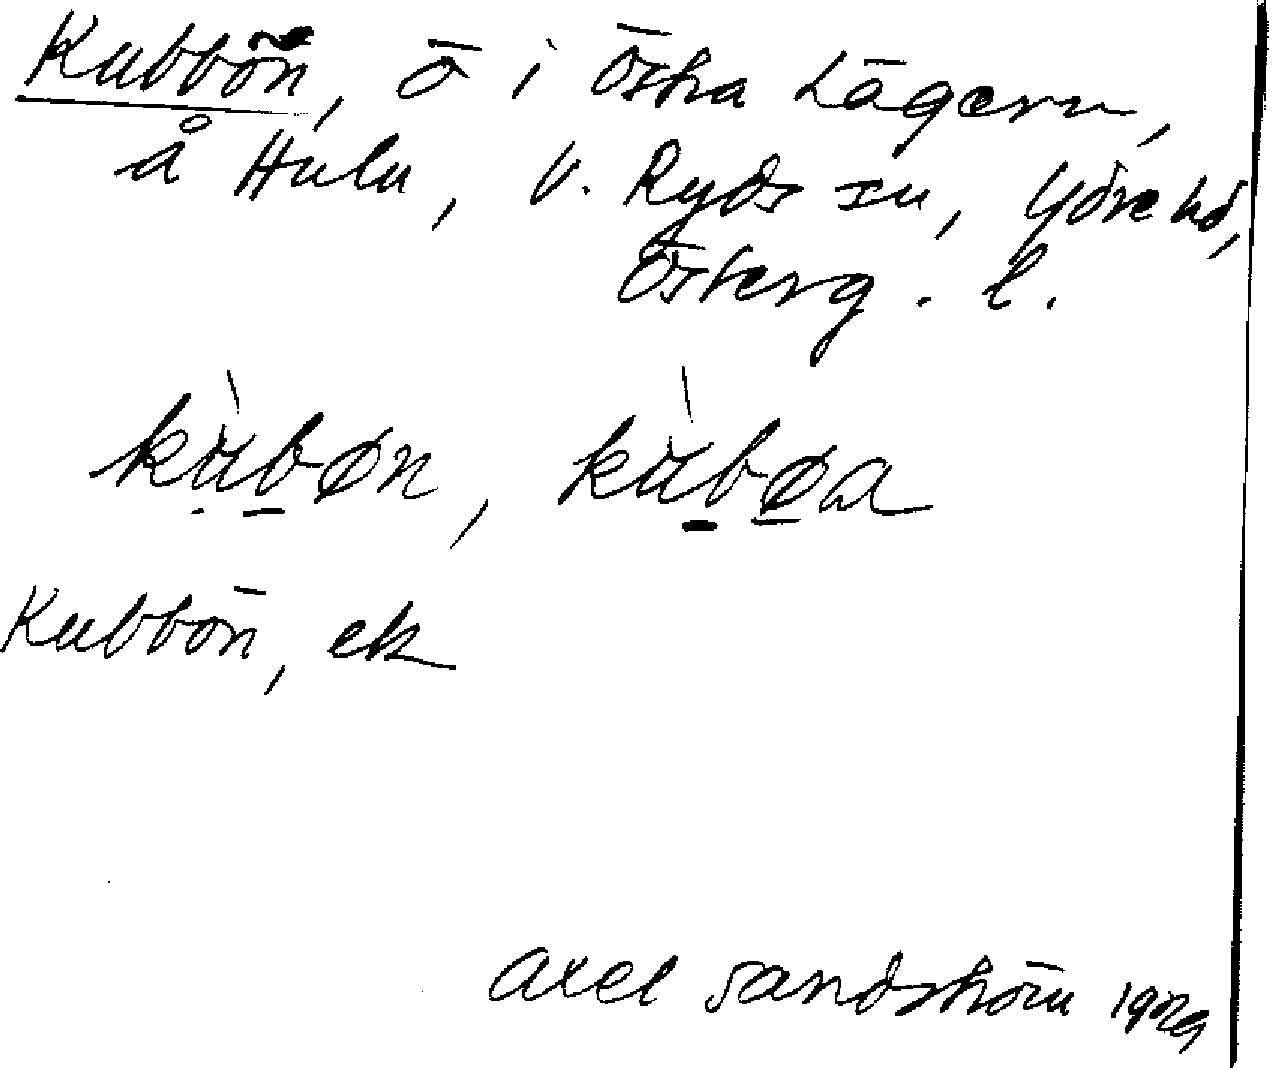 Kubbön, ö i Östra Lägern,
å Hulu, V. Ryds sn, Ydre hd,
Österg. l.
kùbøn, kùbøa
Kubbön, ek
Axel Sandström 1929